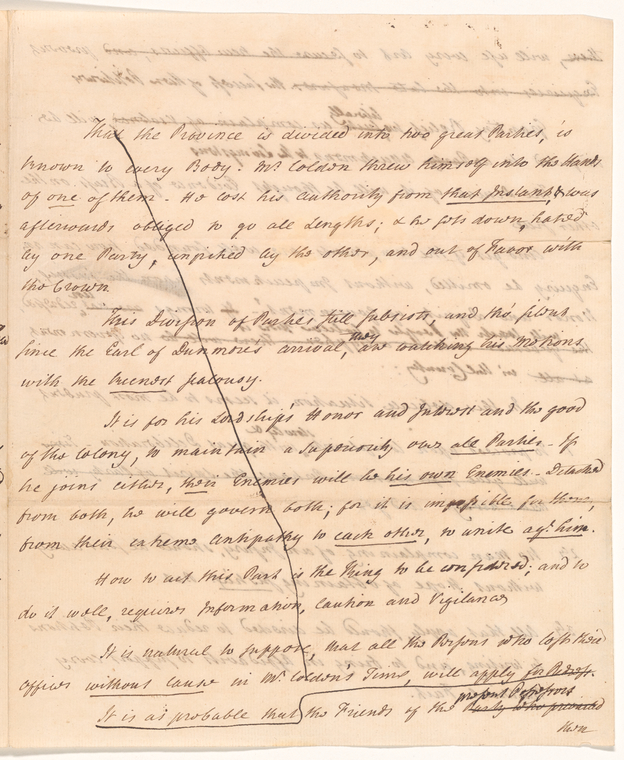 That the Province is divided into two great Parties, is
known to every Body: Mr Colden threw himself into the Hands
of one of them. He lost his Authority from that Instant, & was
afterwards obliged to go all Lengths; & he sets down, hated
by one Party, unpitied by the other, and out of Favor with
the Crown
This Division of Parties still subsists, and tho' silent
since the Earl of Dunmore's arrival, they are watching his Motions
with the keenest Jealousy.
It is for his Lordship's Honor and Interest and the good
of the Colony, to maintain a Superiority over all Parties. If
he joins either, their Enemies will be his own Enemies. Detached
from both, he will govern both; for it is impossible for them,
from their extreme Antipathy to each other, to unite agt. him.
How to act this Part is the Thing to be considered; and to
do it well, requires Information, Caution and Vigilance
It is natural to suppose, that all the Persons who lost their
Offices without cause in Mr. Colden's Time, will apply for Redress.
It is as probable that the Friends of the present Possessors Party who procured
them